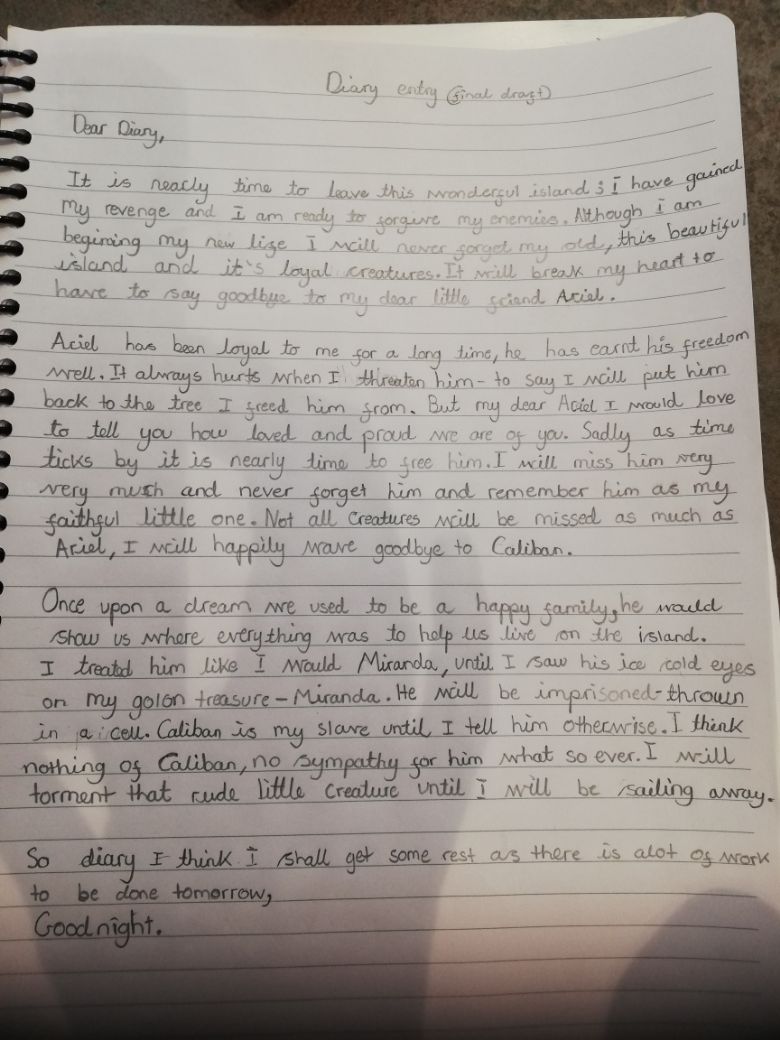 Diary entry (final draft)
Dear Diary,
It is nearly time to leave this wonderful island; i have gained
my revenge and I am ready to forgive my enemies. Although i am
begining my new life I will never forget my old, this beautiful
island and it's loyal creatures. It will break my heart to
have to say goodbye to my dear little friend Ariel.
Ariel has been loyal to me for a long time, he has earnt his freedom
well. It always hurts when I threaten him - to say I will put him
back to the tree I freed him from. But my dear Ariel I would love
to tell you how loved and proud we are of you. Sadly as time
ticks by it is nearly time to free him. I will miss him very
very much and never forget him and remember him as my
faithful little one. Not all creatures will be missed as much as
Ariel, I will happily wave goodbye to Caliban.
Once upon a dream we used to be a happy family, he would
show us where everything was to help us live on the island.
I treated him like I would Miranda, until I saw his ice cold eyes
on my golon treasure - Miranda. He will be imprisoned - thrown
in a cell. Caliban is my slave until I tell him otherwise. I think
nothing of Caliban, no sympathy for him what so ever. I will
torment that rude little creature until i will be sailing away.
So diary I think I shall get some rest as there is alot of work
to be done tomorrow,
Goodnight.